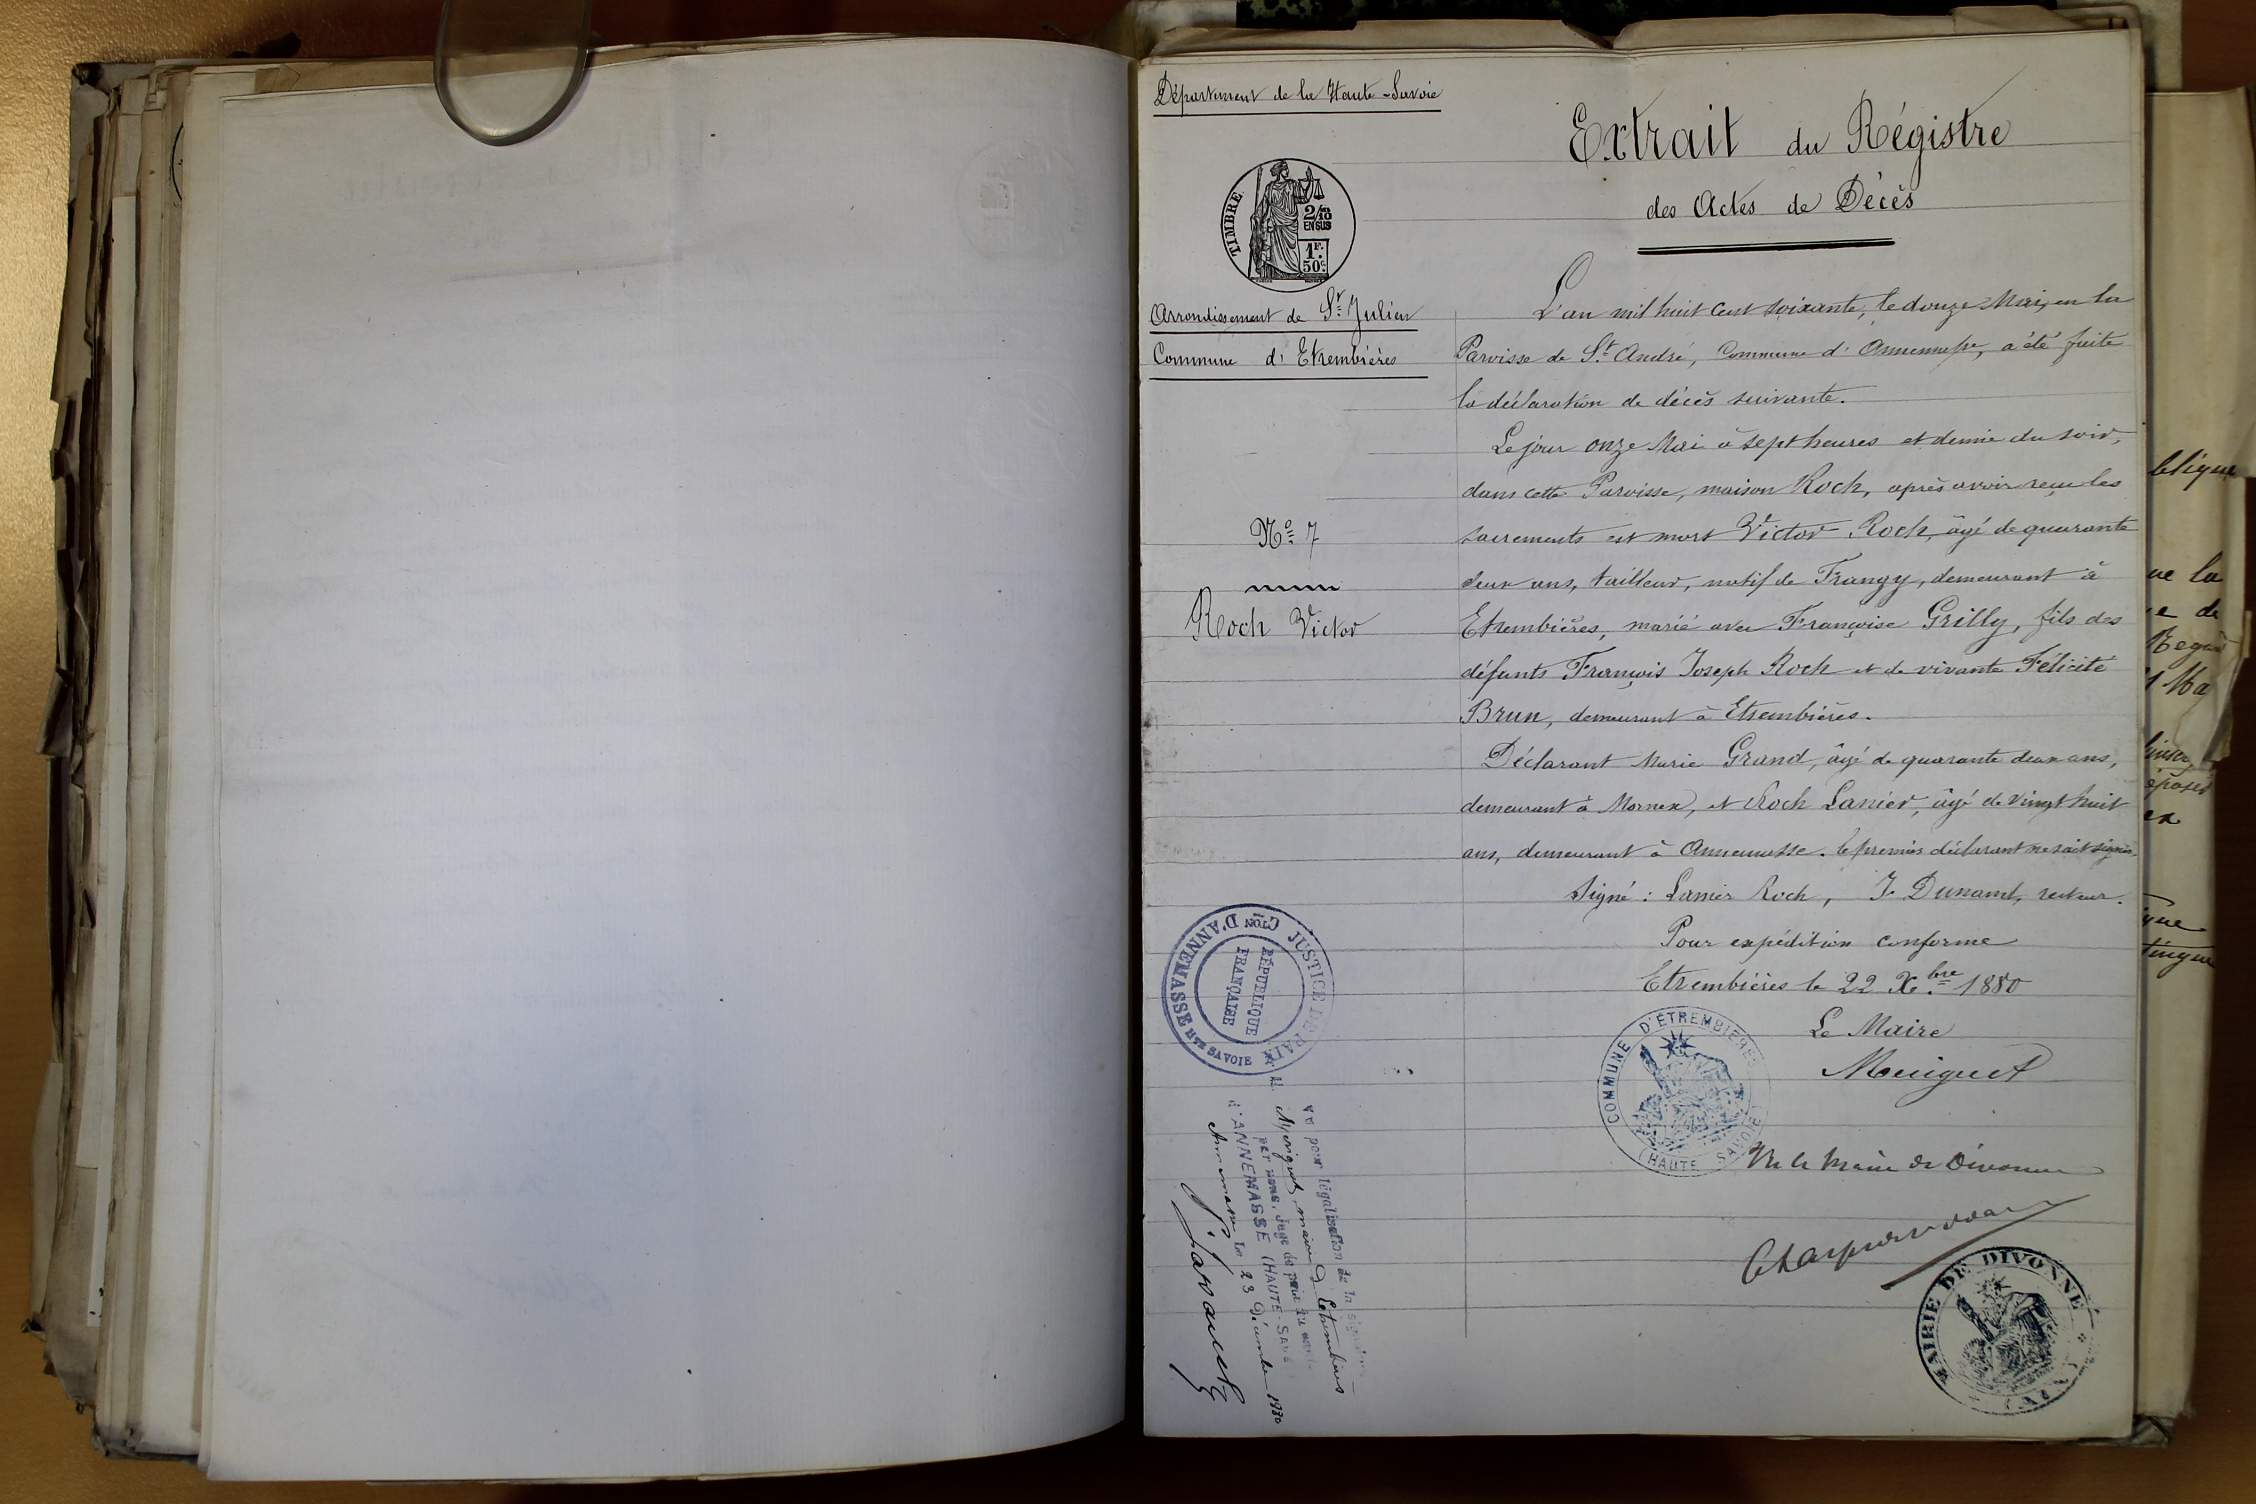 Département de la Haute-Savoie
TIMBRE
2/10
EN SUS
1F.
50c.
Arrondissement de St. Julien
Commune d'Etrembières
No. 7
Roch Victor
Extrait du Régistre
des Actes de Décès
L'an mil huit cent soixante, le douze Mai, en la
Paroisse de St. André, Commune d'Annemasse, a été faite
la déclaration de décès suivante.
Le jour onze Mai à sept heures et demie du soir,
dans cette Paroisse, maison Roch, après avoir reçu les
sacrements est mort Victor Roch, âgé de quarante
deux ans, tailleur, natif de Frangy, demeurant à
Etrembières, marié avec Françoise Grilly, fils des
défunts François Joseph Roch et de vivante Félicité
Brun, demeurant à Etrembières.
Déclarant Marie Grand, âgé de quarante deux ans,
demeurant à Mornex, et Roch Lanier, âgé de vingt huit
ans, demeurant à Annemasse. le premier déclarant ne sait signer.
Signé : Lanier Roch, J. Dunant, recteur.
Pour expédition conforme
Etrembières le 22 Xbre 1880
Le Maire
Meuiguet
COMMUNE D'ETREMBIERES
(HAUTE SAVOIE)
Vu le Maire de Divonne
MAIRIE DE DIVONNE
(AIN)
JUSTICE DE PAIX
Cton D'ANNEMASSE Hte SAVOIE
RÉPUBLIQUE
FRANÇAISE
Vu pour légalisation de la signature
de M.
maire d'Etrembières
par nous, Juge de paix du canton
d'ANNEMASSE (HAUTE-SAVOIE)
Annemasse Le 23 Décembre 1880
blique
ue la
e de
Ma
époser
ex
que